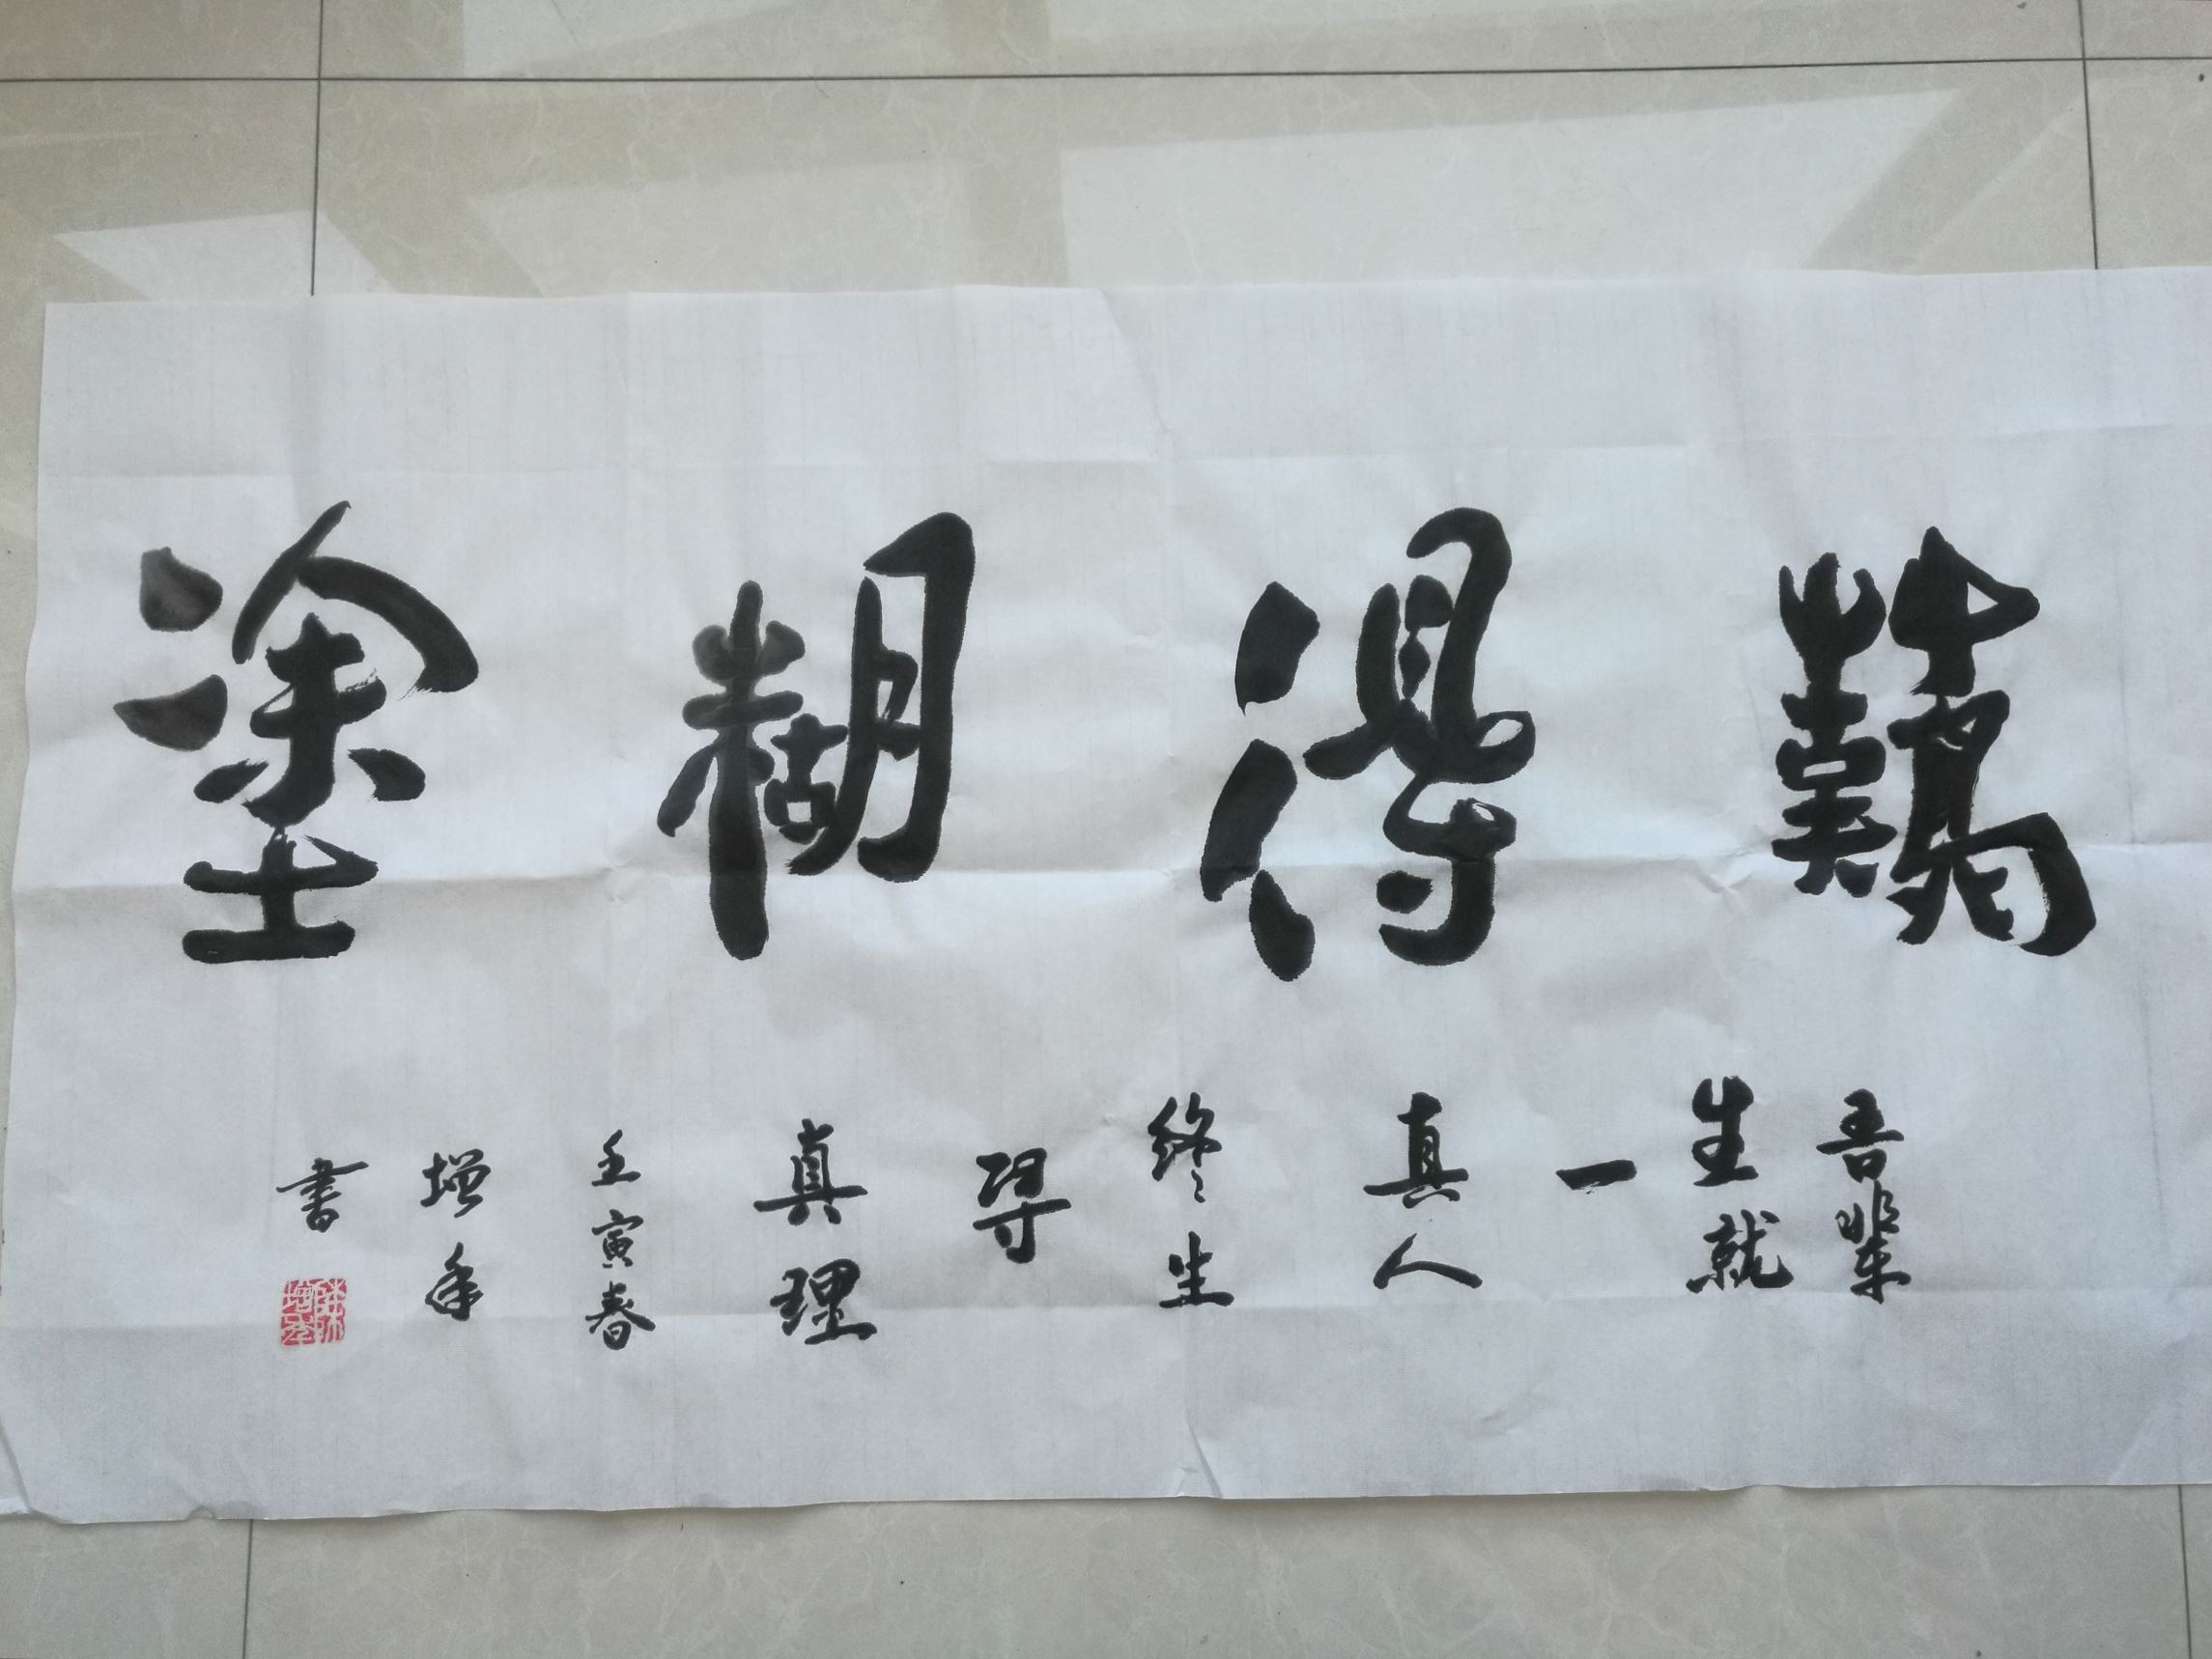 難得糊塗
吾輩
生就
一
真人
終生
尋
真理
壬寅春
增年
書